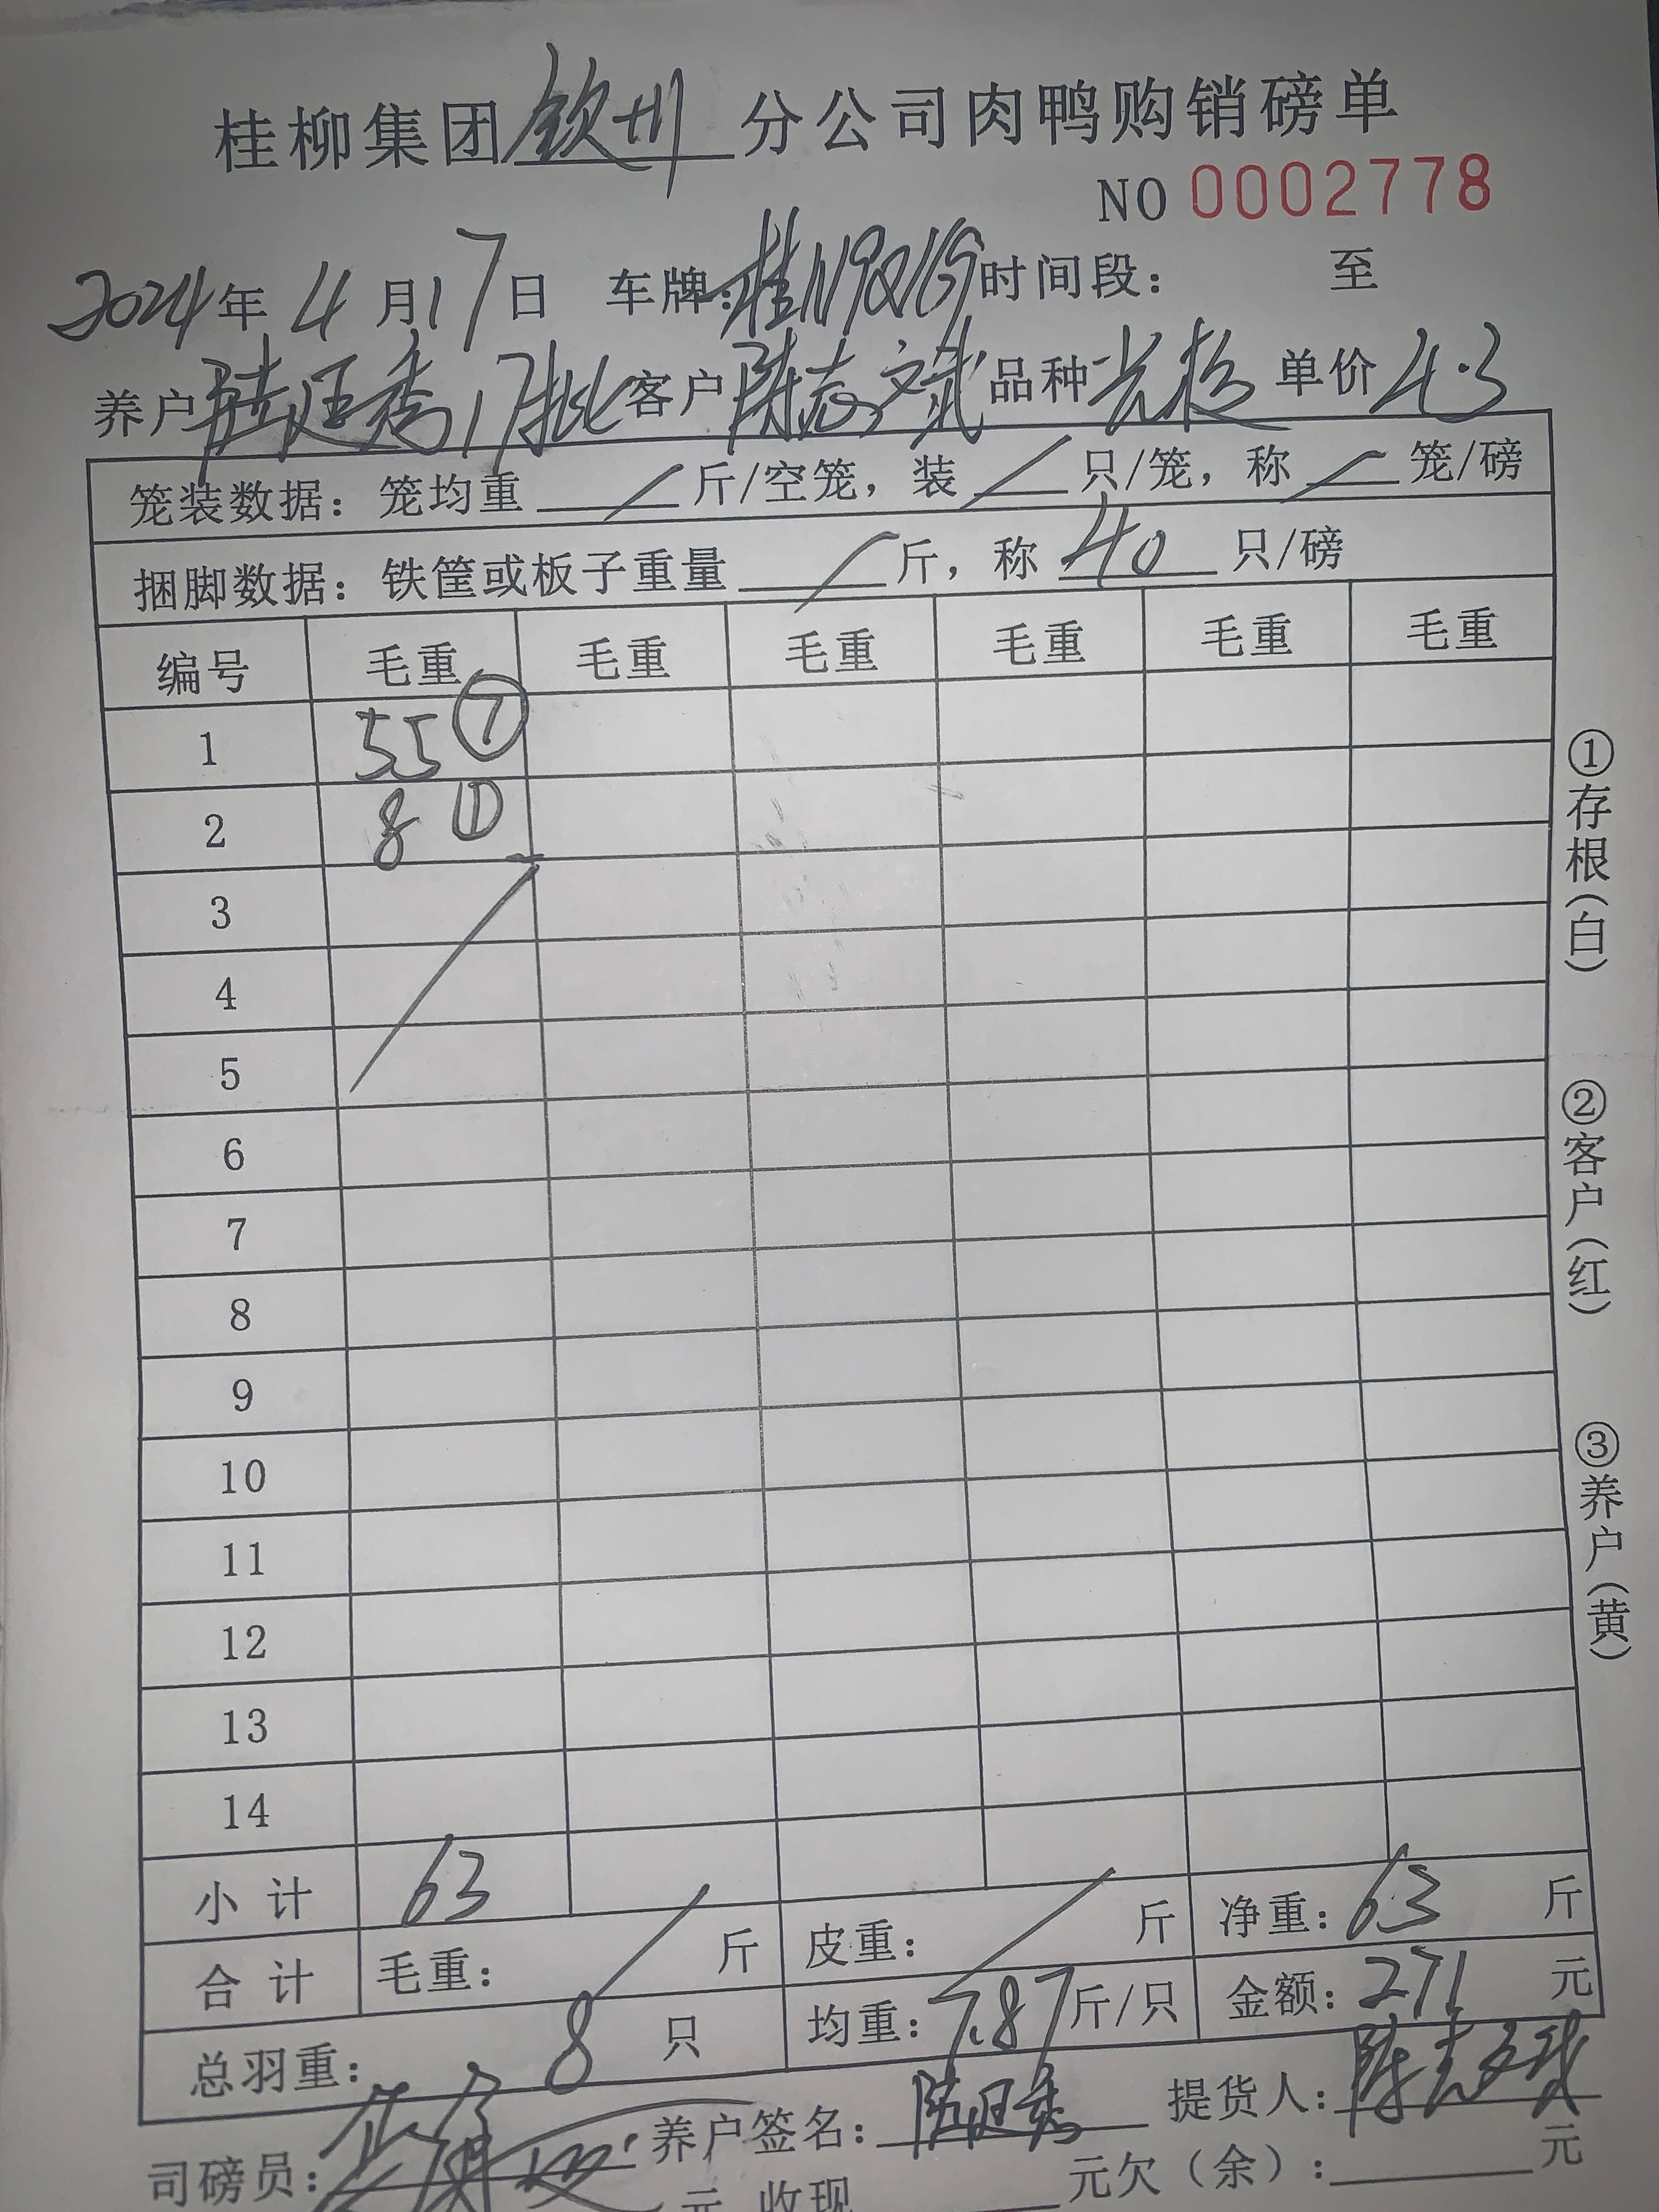 桂柳集团钦州分公司肉鸭购销磅单
NO 0002778
2024年4月17日 车牌: 时间段: 至
养户陆旺秀17批 客户陈志斌 品种 单价4.3
笼装数据: 笼均重 / 斤/空笼, 装 / 只/笼, 称 / 笼/磅
捆脚数据: 铁筐或板子重量 / 斤, 称 40 只/磅
编号 毛重 毛重 毛重 毛重 毛重 毛重
1 55 ⑦
2 8 ①
3
4
5
6
7
8
9
10
11
12
13
14
小计 63
合计 毛重: / 斤 皮重: / 斤 净重: 63 斤
总羽重: 8 只 均重: 7.87 斤/只 金额: 271 元
司磅员: 养户签名: 陆旺秀 提货人: 陈志斌
元 收现 元欠(余): 元
①存根(白)
②客户(红)
③养户(黄)